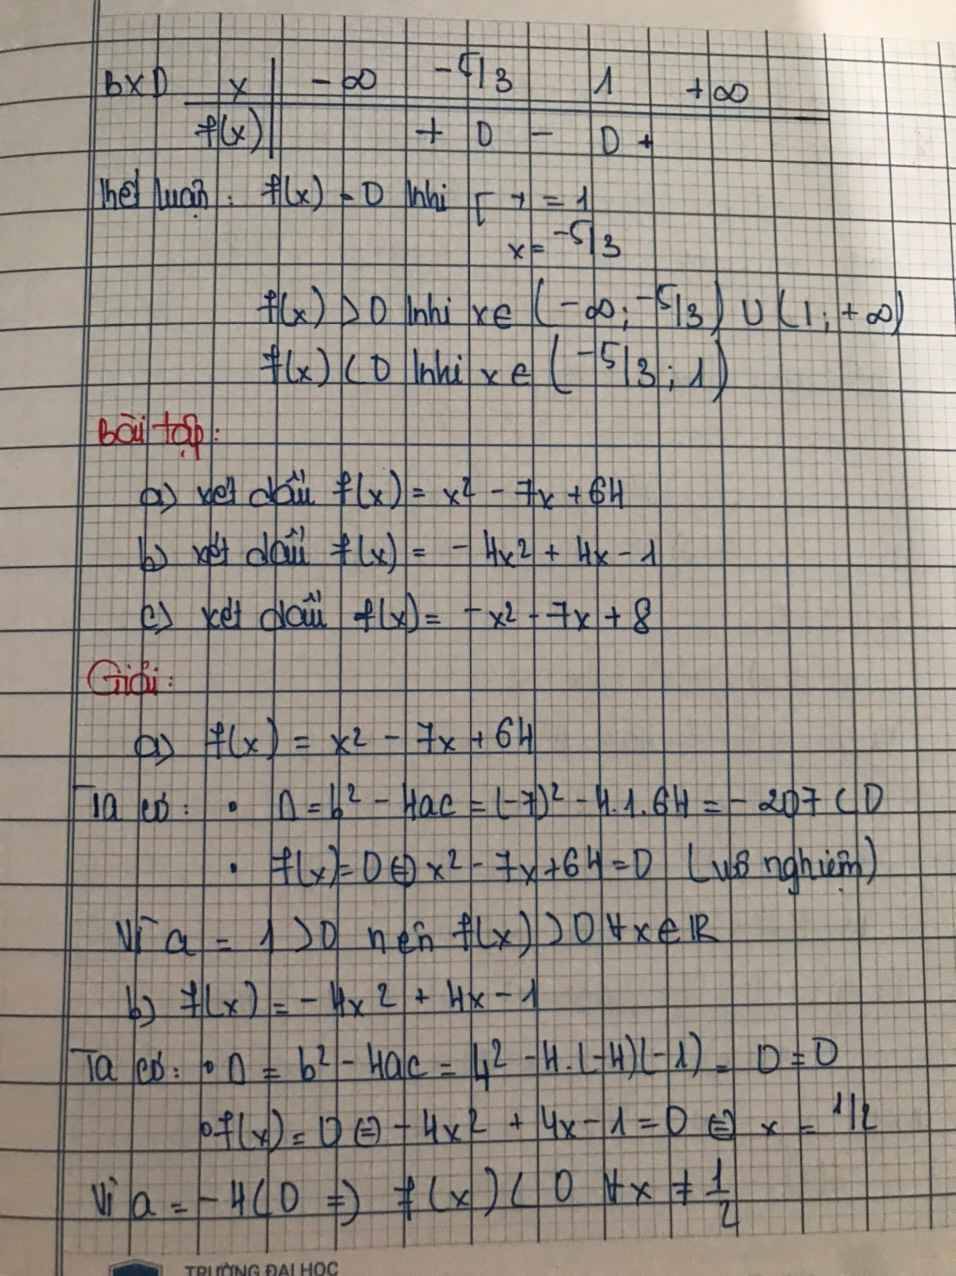 BXD x -∞ -5/3 1 +∞
f(x) + 0 - 0 +
Kết luận: f(x) = 0 khi [ x = 1
x = -5/3
f(x) > 0 khi x ∈ (-∞; -5/3) ∪ (1; +∞)
f(x) < 0 khi x ∈ (-5/3; 1)
Bài tập:
a) xét dấu f(x) = x² - 7x + 64
b) xét dấu f(x) = -4x² + 4x - 1
c) xét dấu f(x) = -x² - 7x + 8
Giải:
a) f(x) = x² - 7x + 64
Ta có: • Δ = b² - 4ac = (-7)² - 4.1.64 = -207 < 0
• f(x) = 0 ⇔ x² - 7x + 64 = 0 (vô nghiệm)
Vì a = 1 > 0 nên f(x) > 0 ∀x ∈ ℝ
b) f(x) = -4x² + 4x - 1
Ta có: • Δ = b² - 4ac = 4² - 4.(-4)(-1) = 0 = 0
• f(x) = 0 ⇔ -4x² + 4x - 1 = 0 ⇔ x = 1/2
Vì a = -4 < 0 ⇒ f(x) < 0 ∀x ≠ 1/2
TRƯỜNG ĐẠI HỌC